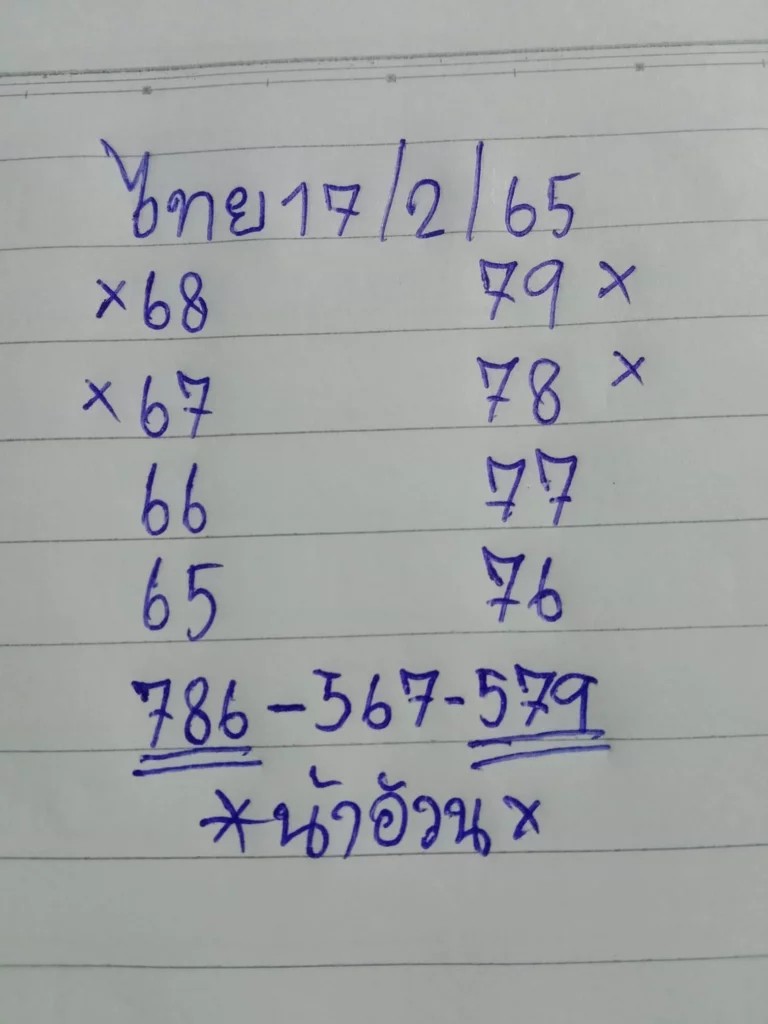 ไทย 17/2/65
×68 79×
×67 78×
66 77
65 76
786-567-579
*น้าอ้วน×